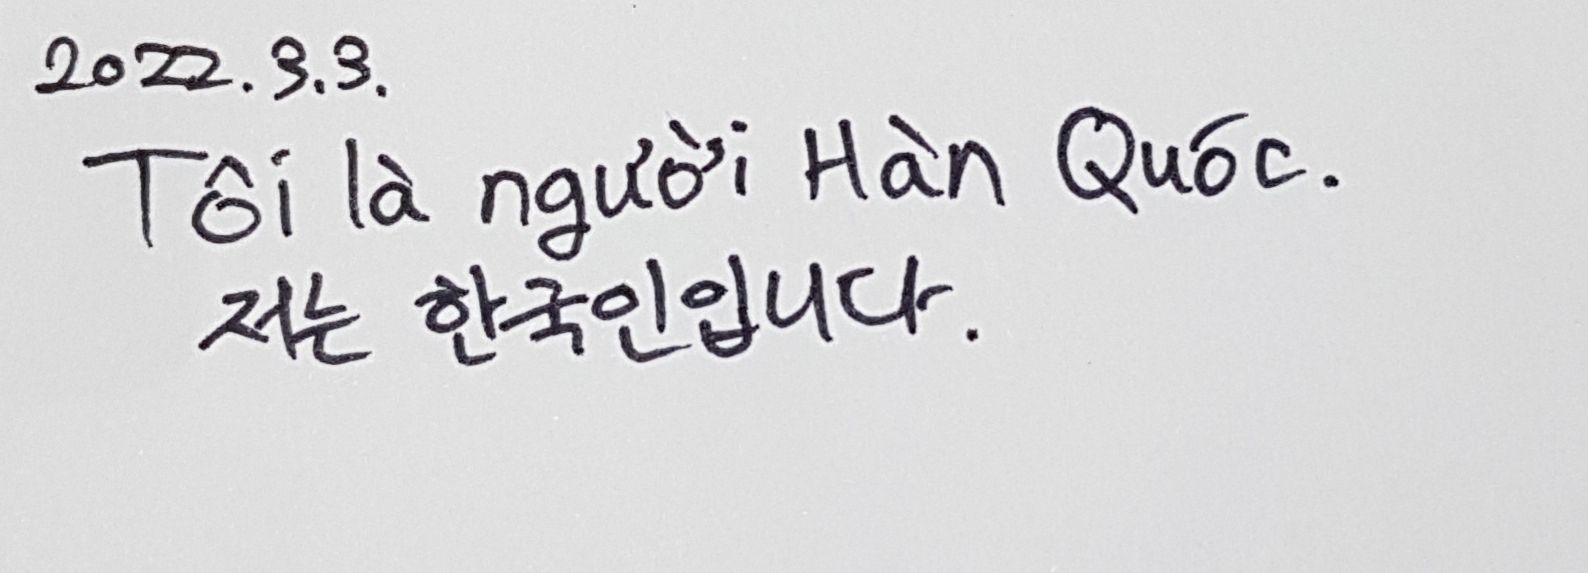 2022.3.3.
Tôi là người Hàn Quóc.
저는 한국인입니다.